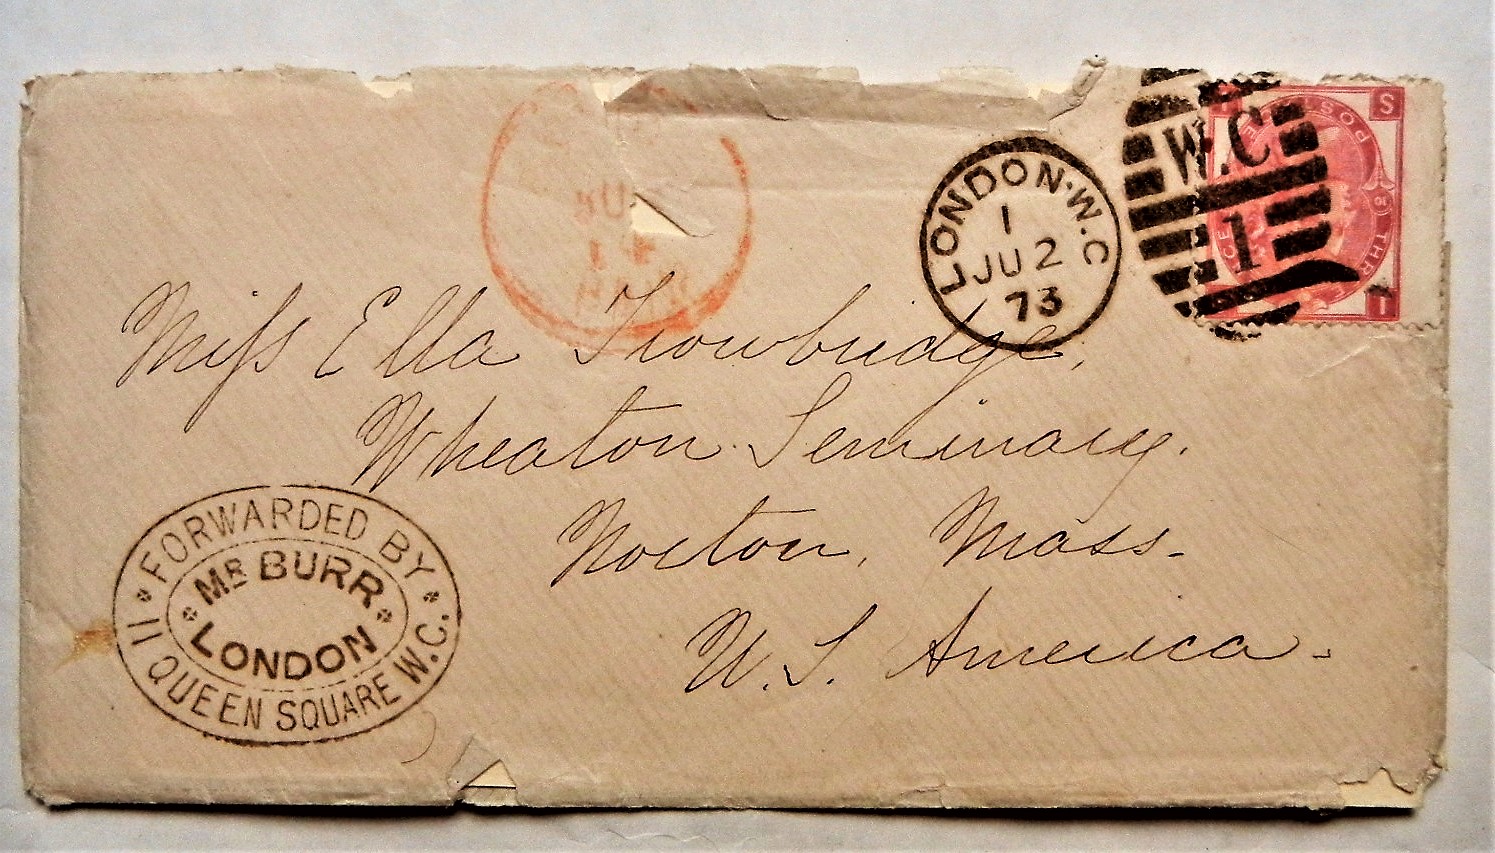 LONDON·W.C
1
JU 2
73
W.C
1
S
POS
THR
CE
I
14
Miss Ella Trowbridge,
Wheaton Seminary.
Norton, Mass.
U.S. America.
FORWARDED BY
MR BURR
LONDON
11 QUEEN SQUARE W.C.